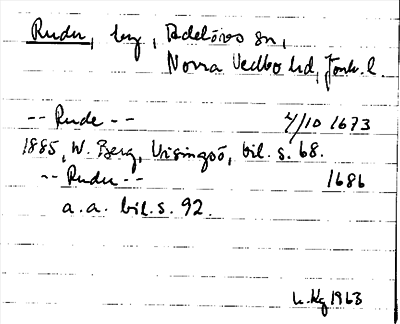 Rudu, by, Adelövs sn,
Norra Vedbo hd, Jönk. l
-- Rude -- 4/10 1673
1885, W. Berg, Visingsö, bil. s. 68.
-- Rudu -- 1686
a.a. bil. s. 92.
1963